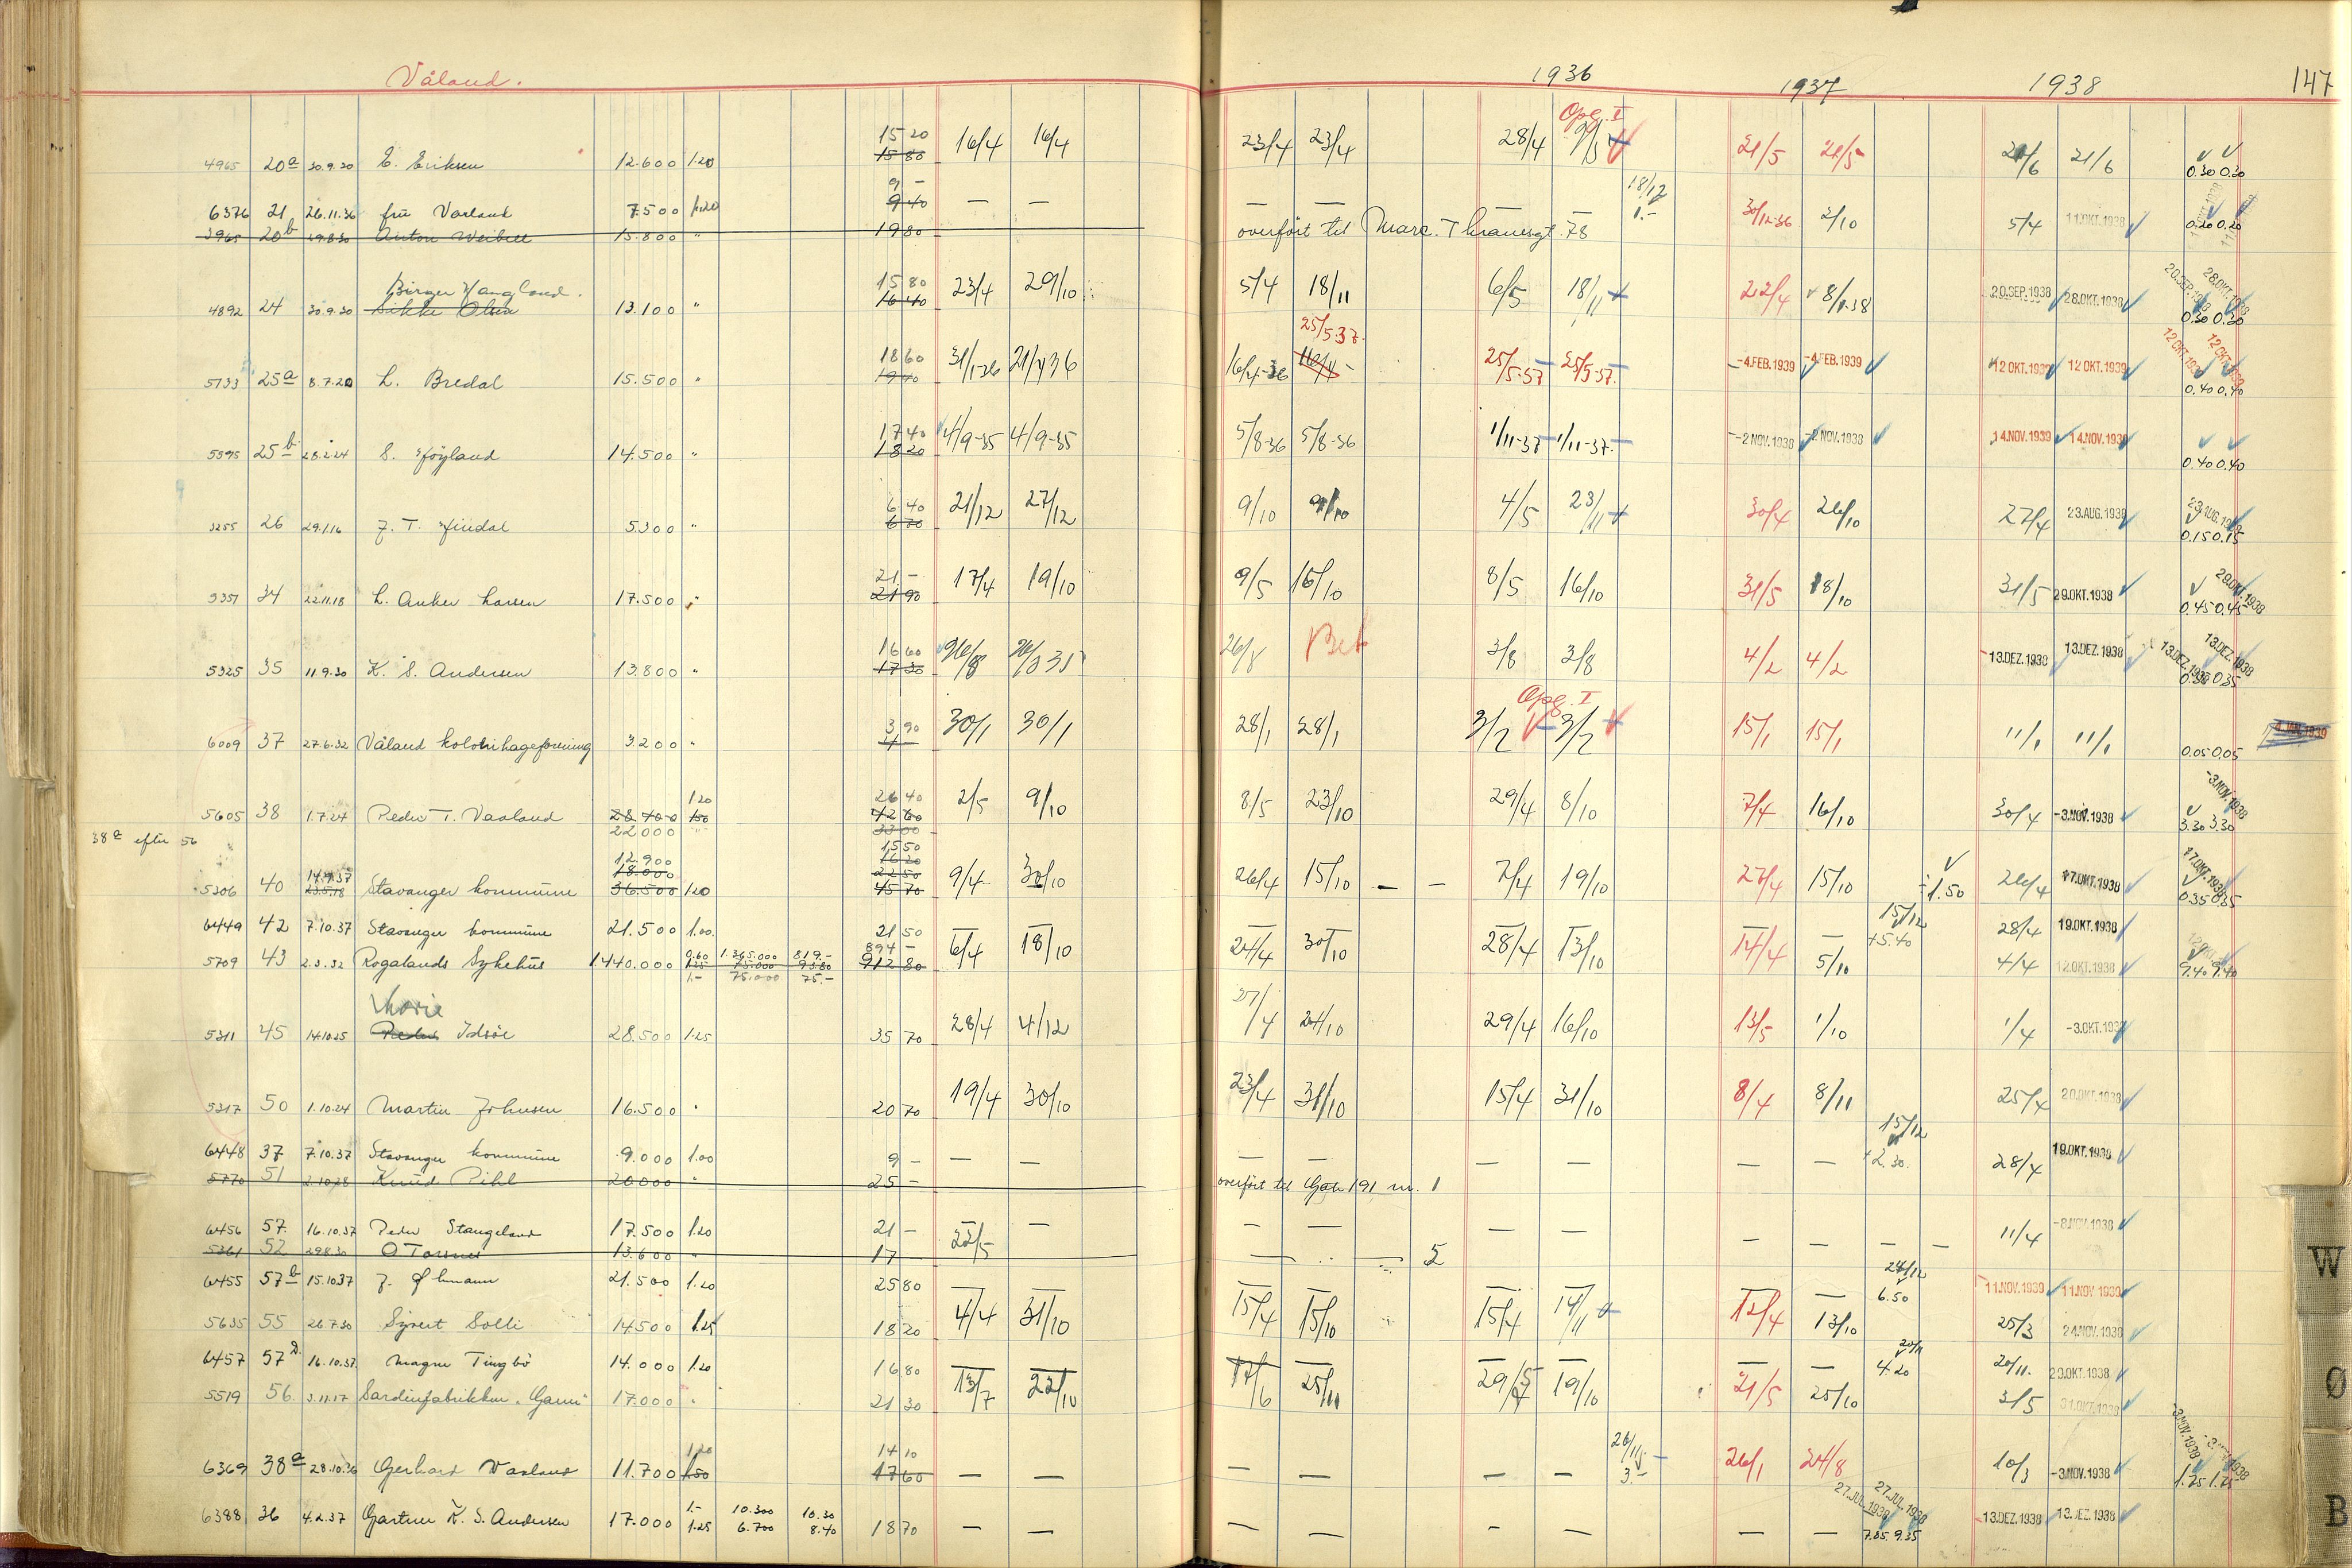 Våland.
1936 1937 1938 147
Opg. I
15 20
4965 20a 30.9.30 E. Eriksen 12.600 1.20 15 80 16/4 16/4 23/4 23/4 28/4 21/5 21/5 21/6 21/6 0.30 0.30
9 - 18/12
6376 21 26.11.36 fru Varland 7.500 1.20 9 40 — — — — — — 1.- 30/12-36 2/10 5/4 11.OKT.1938 0.20 0.20
3965 20b 29.8.30 Anton Weibell 15.800 " 19 80 overført til Marc. Thranesgt. 78
Birger Haugland. 15 80
4892 24 30.9.30 Sikke Olsen 13.100 " 16 40 23/4 29/10 5/4 18/11 6/5 18/11 22/4 8/1-38 20.SEP.1938 28.OKT.1938 20.SEP.1938 28.OKT.1938 0.30 0.30
18 60 25/5 37.
5133 25a 8.7.20 L. Bredal 15.500 " 19 40 31/1-36 21/4 36 16/4-36 16/4 25/5-37 25/5-37. -4.FEB.1939 -4.FEB.1939 12 OKT.1939 12 OKT.1939 12 OKT. 12 OKT. 0.40 0.40
17 40
5595 25b 28.2.24 S. Høyland 14.500 " 18 20 4/9-35 4/9-35 5/8-36 5/8-36 1/11-37 1/11-37. -2 NOV.1938 -2 NOV.1938 14.NOV.1939 14.NOV.1939 0.40 0.40
6 40
3255 26 29.1.16 J. T. Hindal 5.300 " 6 70 21/12 27/12 9/10 9/10 4/5 23/11 30/4 26/10 27/4 23.AUG.1938 23.AUG.1938 0.15 0.15
21 -
3351 34 22.11.18 L. Anker Larsen 17.500 " 21 90 17/4 19/10 9/5 15/10 8/5 16/10 31/5 18/10 31/5 29.OKT.1938 29.OKT.1938 0.45 0.45
16 60
5325 35 11.9.30 K. S. Andersen 13.800 " 17 30 26/8 26/8 35 26/8 Bet 3/8 3/8 4/2 4/2 13.DEZ.1938 13.DEZ.1938 13.DEZ.1938 13.DEZ.1938 0.35 0.35
Opg. I
3 90
6009 37 27.6.32 Våland kolonihageforening 3.200 " 4 30/1 30/1 28/1 28/1 3/2 3/2 15/1 15/1 11/1 11/1 0.05 0.05 4.JAN.1939
1.20 26 40
5605 38 1.7.24 Peder T. Vaaland 28.400 1.50 42 60 2/5 9/10 8/5 23/10 29/4 8/10 7/4 16/10 30/4 -3.NOV.1938 -3.NOV.1938 3.30 3.30
38a efter 56 22.000 33 00
12.900 15 50
18.000 16 20
14.9.37 22 50
5306 40 23.5.18 Stavanger kommune 36.500 1.20 45 70 9/4 30/10 26/4 15/10 — — 7/4 19/10 27/4 15/10 1.50 26/4 17.OKT.1938 17.OKT.1938 0.35 0.35
15/12
6449 42 7.10.37 Stavanger kommune 21.500 1.00. 21 50 — — — — — — — — +5.40 28/4 19.OKT.1938
0.60 1.365.000 819.- 894 -
5709 43 2.3.32 Rogalands Sykehus 1.440.000 1.25 75.000 93.80 912 80 6/4 18/10 24/4 30/10 28/4 13/10 14/4 5/10 4/4 12.OKT.1938 9.40 9.40
1.- 75.000 75.-
Marie
5311 45 14.10.25 Peder Idsøe 28.500 1.25 35 70 28/4 4/12 27/4 24/10 29/4 16/10 13/5 1/10 1/4 -3.OKT.193
5317 50 1.10.24 Martin Johnsen 16.500 " 20 70 19/4 30/10 23/4 31/10 15/4 31/10 8/4 8/11 25/4 20.OKT.1938
15/12
6448 37 7.10.37 Stavanger kommune 9.000 1.00 9 - — — — — — — — — +2.30. 28/4 19.OKT.1938
5770 51 2.10.28 Knud Pihl 20000 " 25 - overført til Gate 191 nr. 1
6456 57. 16.10.37 Peder Stangeland 17.500 1.20 21 - — — — — — — — — — — 11/4 -8.NOV.1938
5361 52 29.8.30 O Tarsnes 13.600 " 17 22/5 — — 5
24/12
6455 57b 15.10.37 J. Ohmann 21.500 1.20 25 80 — — — — — — — — 6.50 11.NOV.1939 11.NOV 1939
5635 55 26.7.30 Sivert Solli 14500 1.25 18 20 4/4 31/10 15/4 15/10 15/4 14/11 12/4 13/10 25/3 24.NOV.1938
20/11
6457 57d. 16.10.37. Magne Tingbø 14.000 1.20 16 80 — — — — — — — — 4.20 20/11. 29.OKT.1938
5519 56. 3.11.17 Sardinfabrikken "Gann" 17.000 " 21 30 13/7 22/10 12/6 25/10 29/5 19/10 21/5 25/10 3/5 31.OKT.1938
1.20 14 10 26/11
6369 38a 28.10.36 Gerhard Vaaland 11.700 1.50 17 60 — — — — — — 3.- 26/1 24/8 10/3 -3.NOV.1938 -3.NOV.1938 1.75 1.75
1.- 10.300 10.30 27.JUL.1939 27.JUL.1939
6388 36 4.2.37 Gartner K. S. Andersen 17.000 1.25 6.700 8.40 18 70 — — — — — — — — 7.85 9.35 13.DEZ.1938 13.DEZ.1938
W
Ø
B